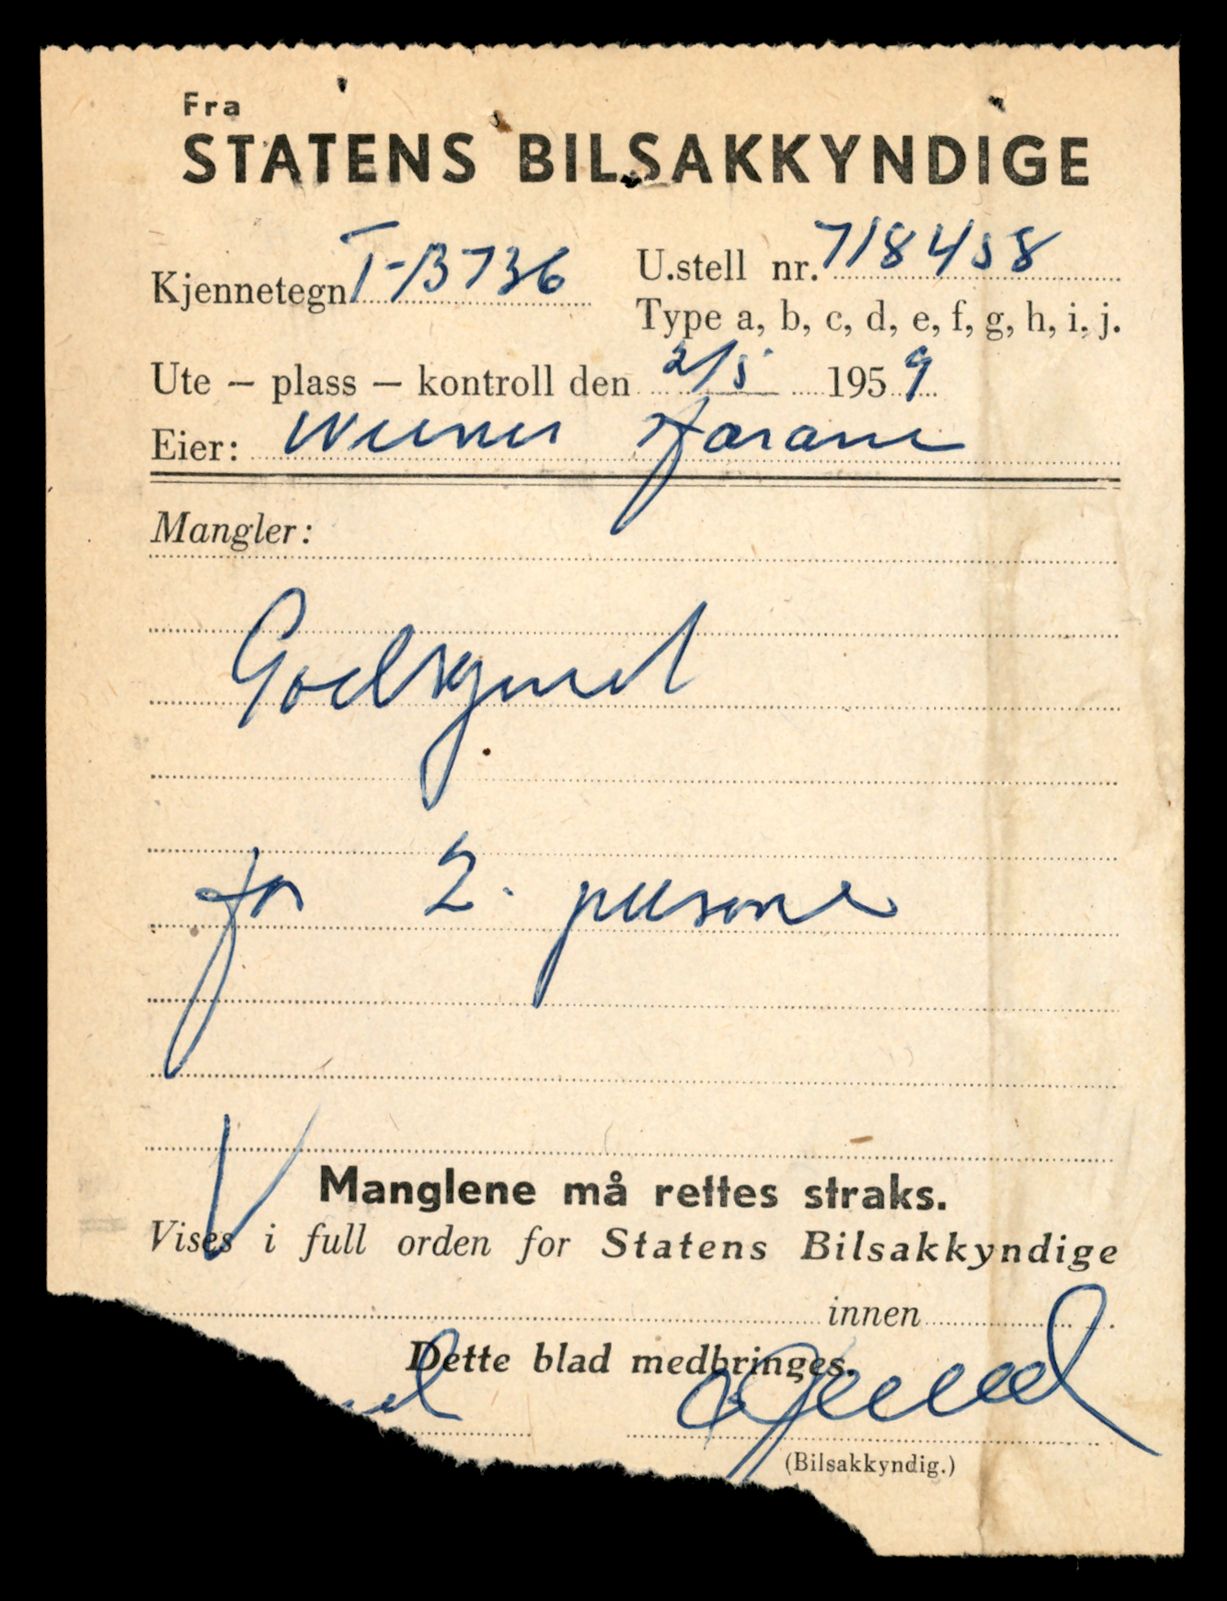 Fra
STATENS BILSAKKYNDIGE
Kjennetegn T-13736 U.stell nr. 718458
Type a, b, c, d, e, f, g, h, i, j.
Ute – plass – kontroll den 2/5 1959
Eier:
Mangler:
Godkjent
for 2. persone
Manglene må rettes straks.
Vises i full orden for Statens Bilsakkyndige
innen
Dette blad medbringes.
(Bilsakkyndig.)